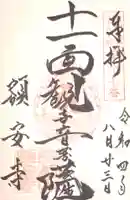 奉拝
令和四年
八月廿三日
十一面観音菩薩
額安寺